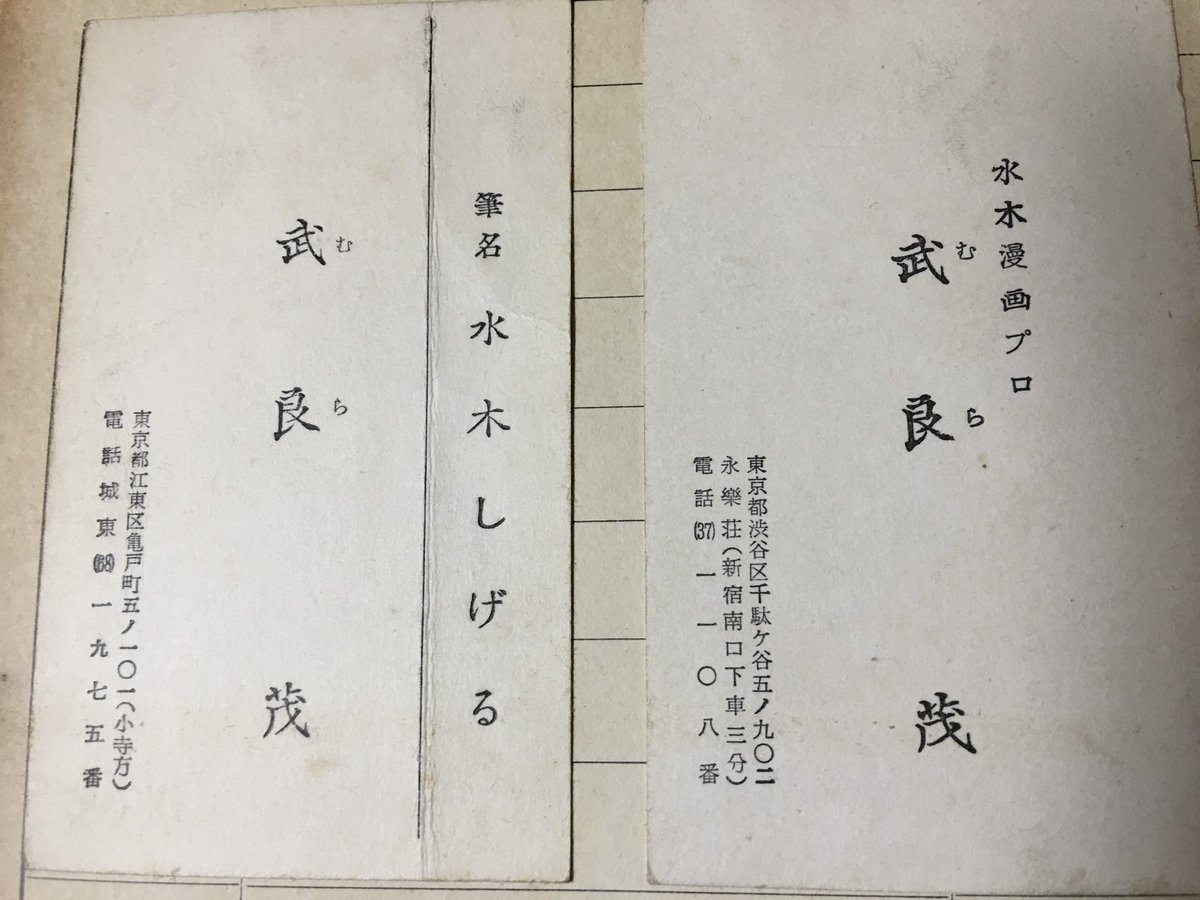 水木漫画プロ
武良茂
むら
東京都渋谷区千駄ケ谷五ノ九〇二
永樂荘（新宿南口下車三分）
電話(37)一一〇八番
筆名 水木しげる
武良茂
むら
東京都江東区亀戸町五ノ一〇一（小寺方）
電話城東(68)一九七五番